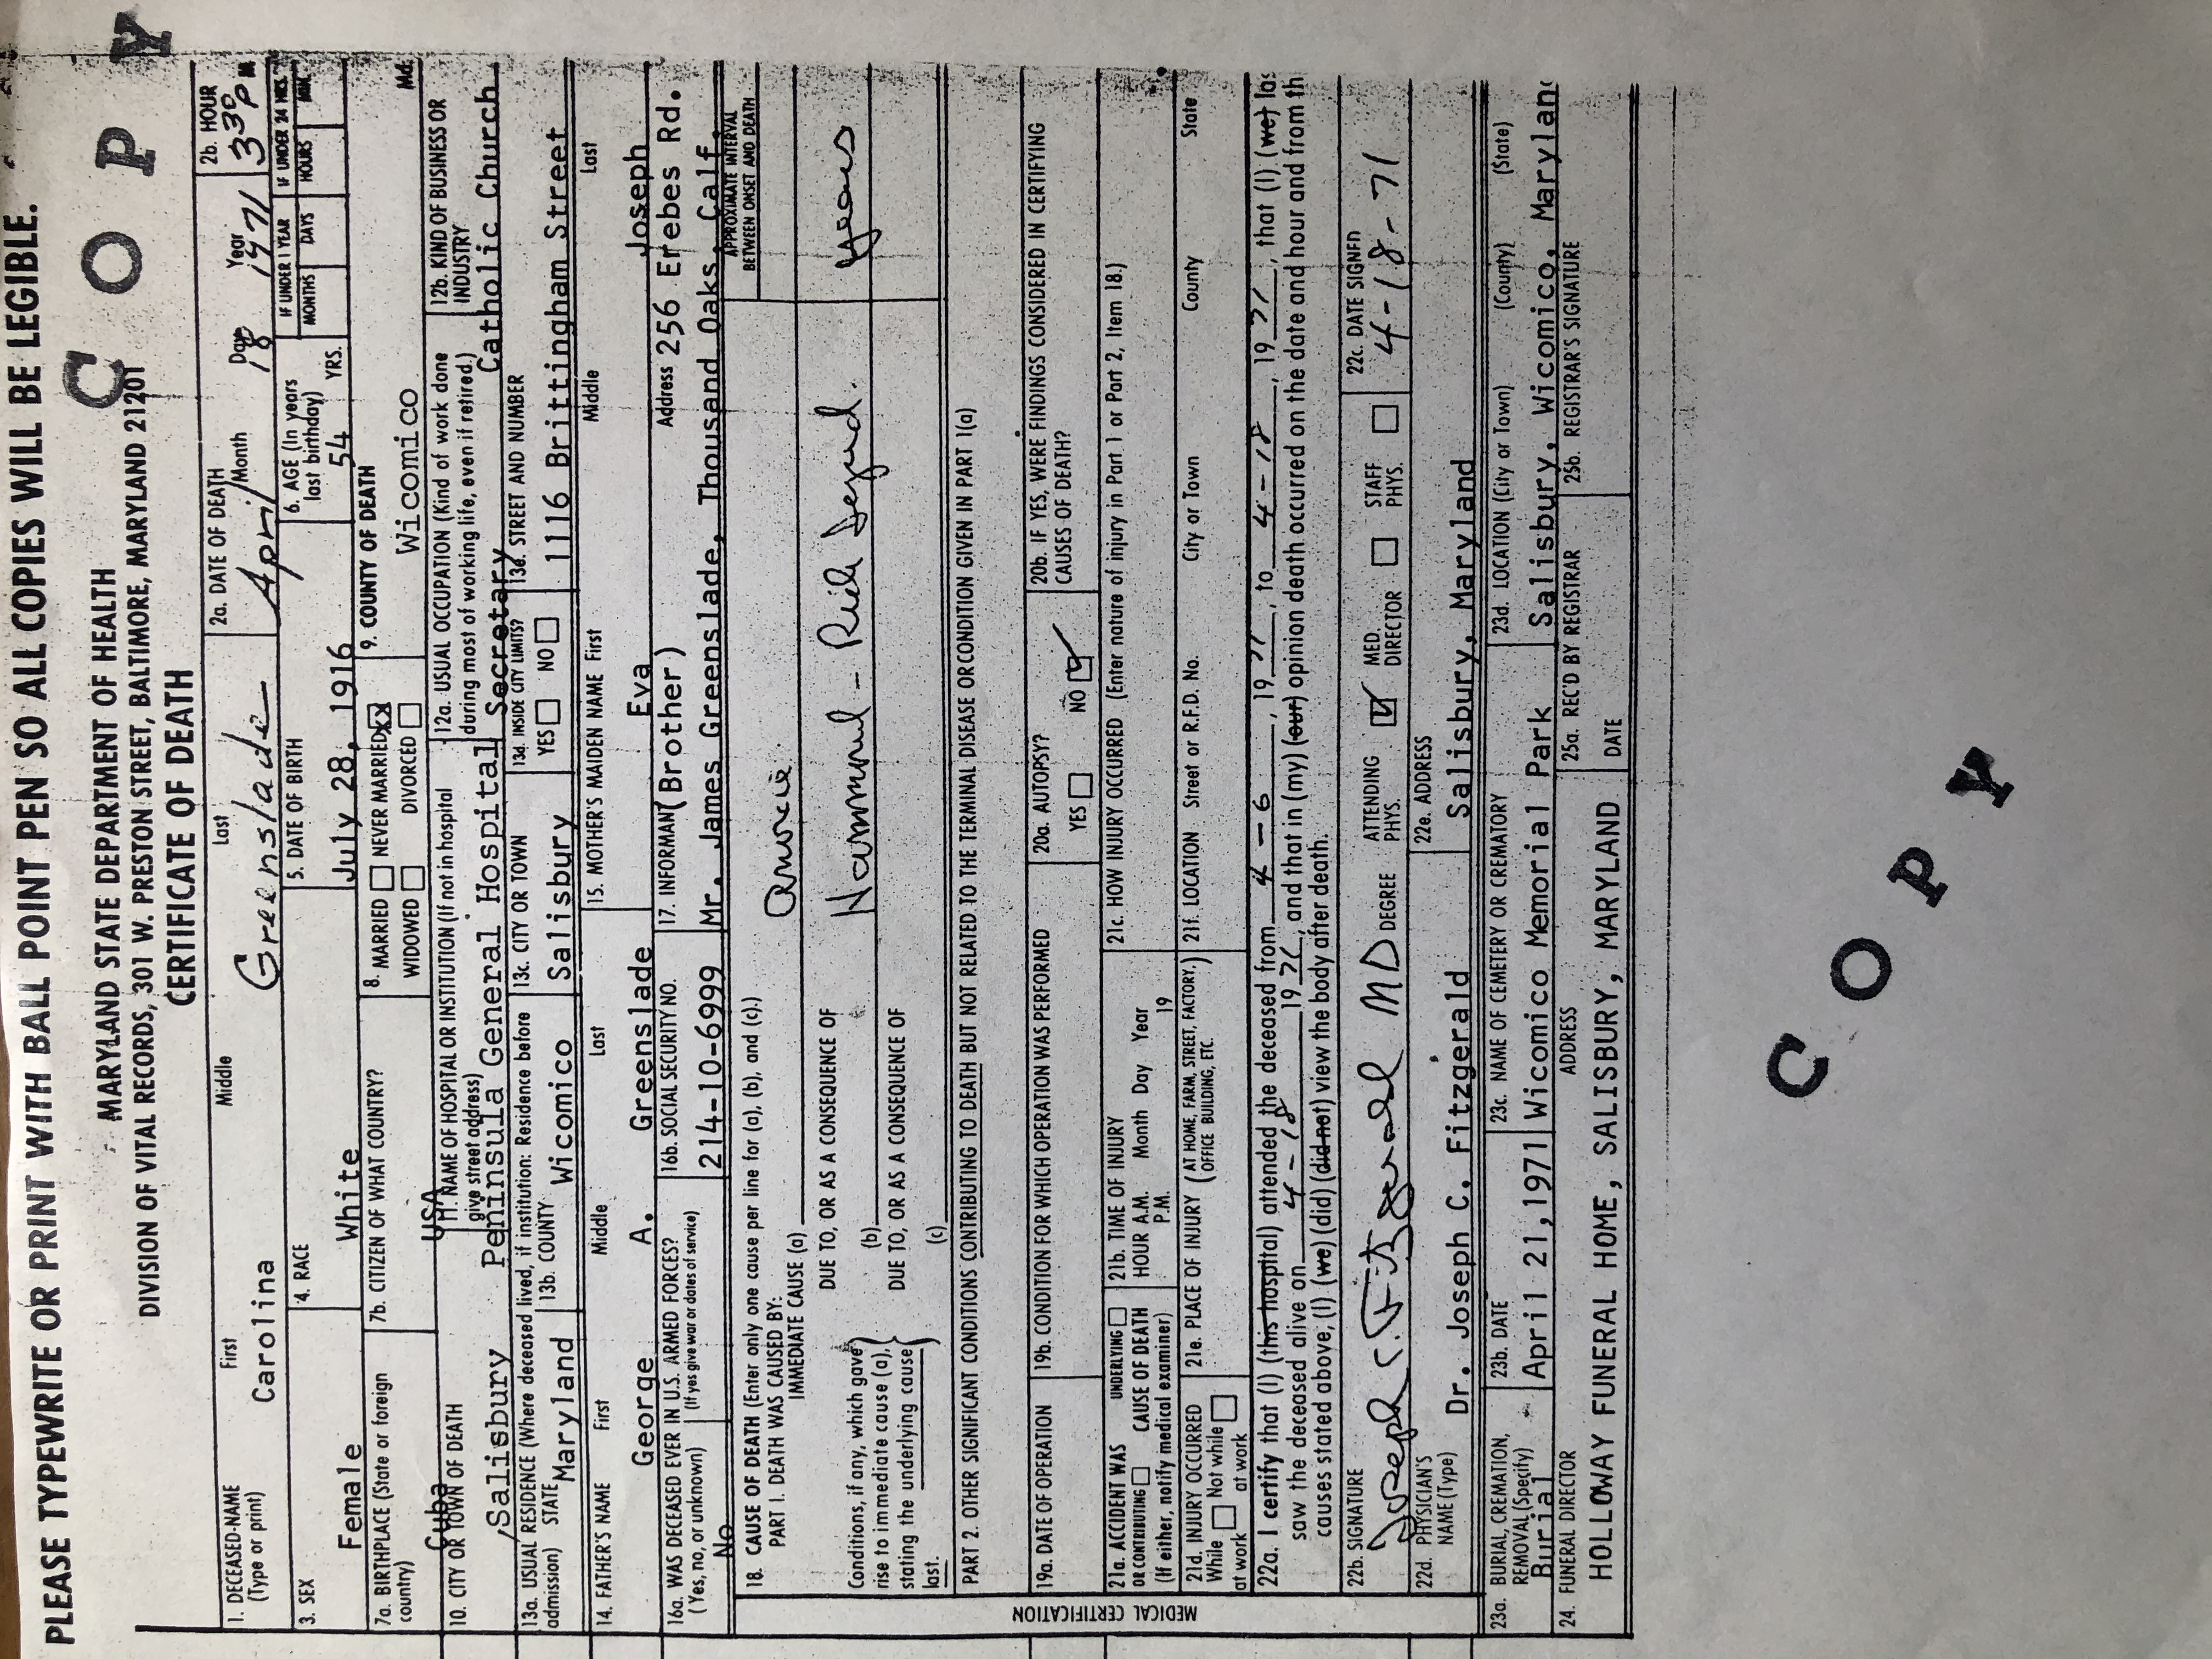 PLEASE TYPEWRITE OR PRINT WITH BALL POINT PEN SO ALL COPIES WILL BE LEGIBLE.
COPY
MARYLAND STATE DEPARTMENT OF HEALTH
DIVISION OF VITAL RECORDS, 301 W. PRESTON STREET, BALTIMORE, MARYLAND 21201
CERTIFICATE OF DEATH
1. DECEASED-NAME (Type or print) First Middle Last
Carolina Greenslade
2a. DATE OF DEATH Month Day Year
April 18 1971
2b. HOUR
3 30 P M
3. SEX
Female
4. RACE
White
5. DATE OF BIRTH
July 28, 1916
6. AGE (In years last birthday)
54 YRS.
IF UNDER 1 YEAR MONTHS DAYS
IF UNDER 24 HRS. HOURS MIN.
7a. BIRTHPLACE (State or foreign country)
Cuba
7b. CITIZEN OF WHAT COUNTRY?
USA
8. MARRIED NEVER MARRIED XX
WIDOWED DIVORCED
9. COUNTY OF DEATH
Wicomico Md.
10. CITY OR TOWN OF DEATH
Salisbury
11. NAME OF HOSPITAL OR INSTITUTION (If not in hospital give street address)
Peninsula General Hospital
12a. USUAL OCCUPATION (Kind of work done during most of working life, even if retired.)
Secretary
12b. KIND OF BUSINESS OR INDUSTRY
Catholic Church
13a. USUAL RESIDENCE (Where deceased lived, if institution: Residence before admission) STATE
Maryland
13b. COUNTY
Wicomico
13c. CITY OR TOWN
Salisbury
13d. INSIDE CITY LIMITS?
YES NO
13e. STREET AND NUMBER
1116 Brittingham Street
14. FATHER'S NAME First Middle Last
George A. Greenslade
15. MOTHER'S MAIDEN NAME First Middle Last
Eva Joseph
16a. WAS DECEASED EVER IN U.S. ARMED FORCES?
(Yes, no, or unknown) (If yes give war or dates of service)
No
16b. SOCIAL SECURITY NO.
214-10-6999
17. INFORMANT (Brother) Address 256 Erebes Rd.
Mr. James Greenslade, Thousand Oaks, Calf.
MEDICAL CERTIFICATION
18. CAUSE OF DEATH (Enter only one cause per line for (a), (b), and (c).)
APPROXIMATE INTERVAL BETWEEN ONSET AND DEATH
PART I. DEATH WAS CAUSED BY:
IMMEDIATE CAUSE (a) Anoxia
DUE TO, OR AS A CONSEQUENCE OF
(b) Hammond - Rich Synd. years
Conditions, if any, which gave rise to immediate cause (a), stating the underlying cause last.
DUE TO, OR AS A CONSEQUENCE OF
(c)
PART 2. OTHER SIGNIFICANT CONDITIONS CONTRIBUTING TO DEATH BUT NOT RELATED TO THE TERMINAL DISEASE OR CONDITION GIVEN IN PART 1(a)
19a. DATE OF OPERATION
19b. CONDITION FOR WHICH OPERATION WAS PERFORMED
20a. AUTOPSY?
YES NO
20b. IF YES, WERE FINDINGS CONSIDERED IN CERTIFYING CAUSES OF DEATH?
21a. ACCIDENT WAS UNDERLYING
OR CONTRIBUTING CAUSE OF DEATH
(If either, notify medical examiner)
21b. TIME OF INJURY
HOUR A.M. Month Day Year
P.M. 19
21c. HOW INJURY OCCURRED (Enter nature of injury in Part 1 or Part 2, Item 18.)
21d. INJURY OCCURRED
While at work Not while at work
21e. PLACE OF INJURY (AT HOME, FARM, STREET, FACTORY, OFFICE BUILDING, ETC.)
21f. LOCATION Street or R.F.D. No. City or Town County State
22a. I certify that (I) (this hospital) attended the deceased from 4-6, 1971, to 4-18, 1971, that (I) (we) las
saw the deceased alive on 4-18 1971, and that in (my) (our) opinion death occurred on the date and hour and from th
causes stated above, (I) (we) (did) (did not) view the body after death.
22b. SIGNATURE
Joseph C. Fitzgerald MD DEGREE
ATTENDING PHYS. MED. DIRECTOR STAFF PHYS.
22c. DATE SIGNED
4-18-71
22d. PHYSICIAN'S NAME (Type)
Dr. Joseph C. Fitzgerald
22e. ADDRESS
Salisbury, Maryland
23a. BURIAL, CREMATION, REMOVAL (Specify)
Burial
23b. DATE
April 21,1971
23c. NAME OF CEMETERY OR CREMATORY
Wicomico Memorial Park
23d. LOCATION (City or Town) (County) (State)
Salisbury, Wicomico, Marylan
24. FUNERAL DIRECTOR ADDRESS
HOLLOWAY FUNERAL HOME, SALISBURY, MARYLAND
25a. REC'D BY REGISTRAR
DATE
25b. REGISTRAR'S SIGNATURE
COPY